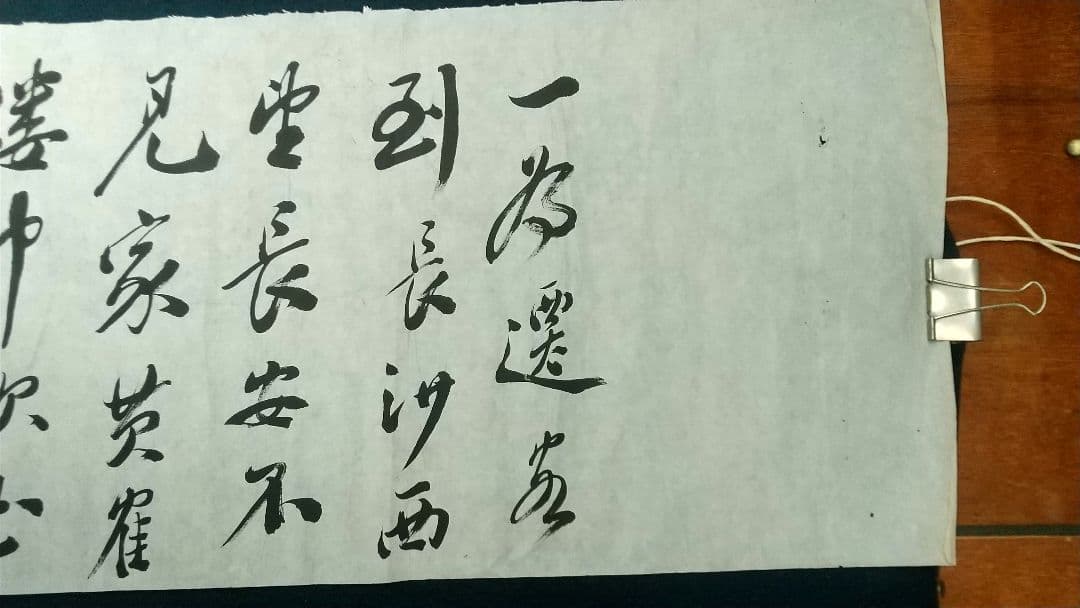 一为遷客
到長沙西
望長安不
見家黄隺
楼中吹玉